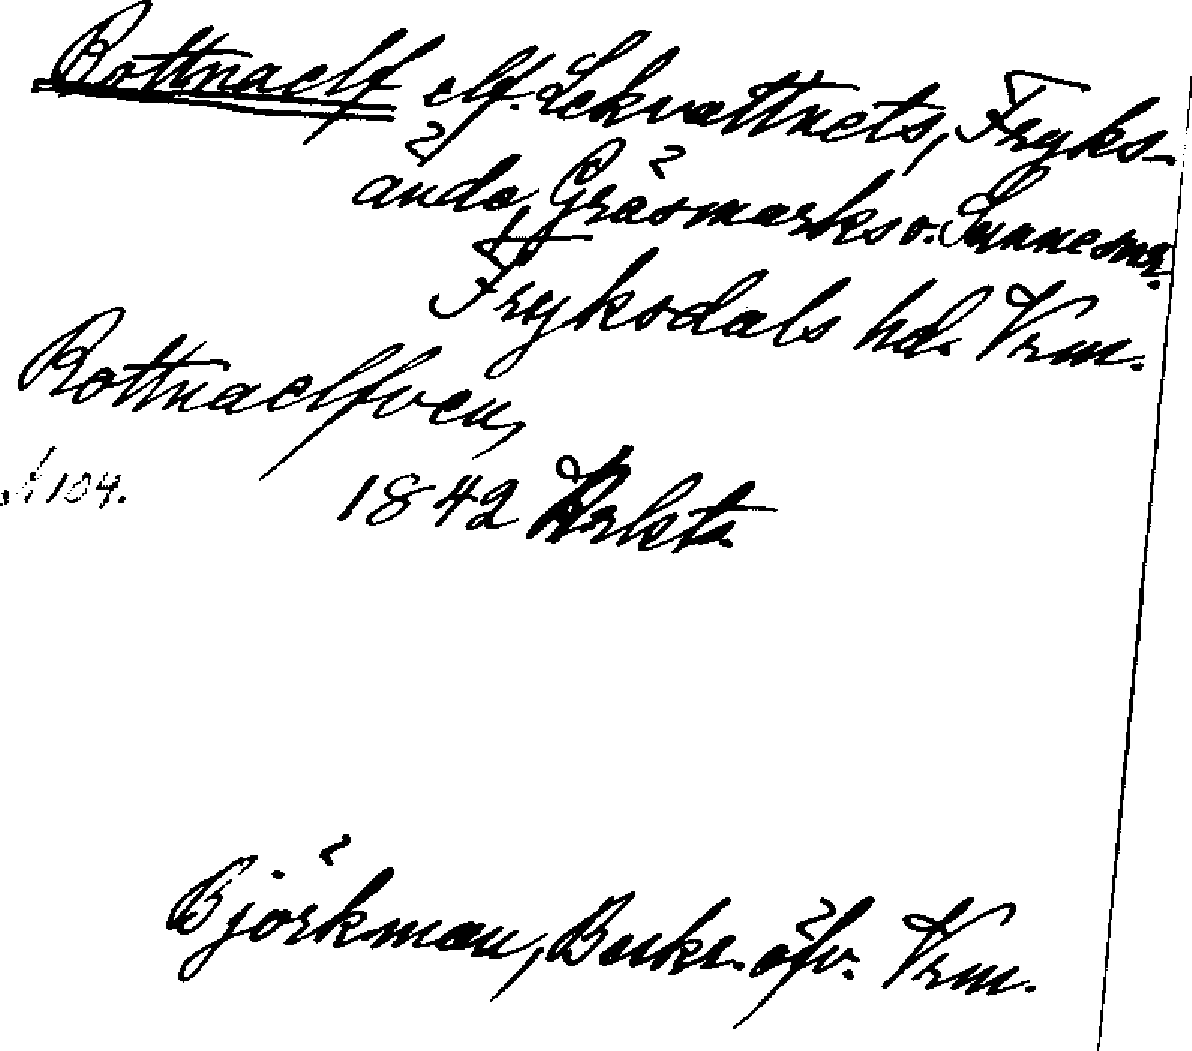 Rottnaelf elf. Lekvattnets, Fryks-
ände, Gräsmarks o. Sunne snr.
Fryksdals hd. Vrm.
Rottnaelfven,
1842
104.
Björkman, Beskr. öfv. Vrm.